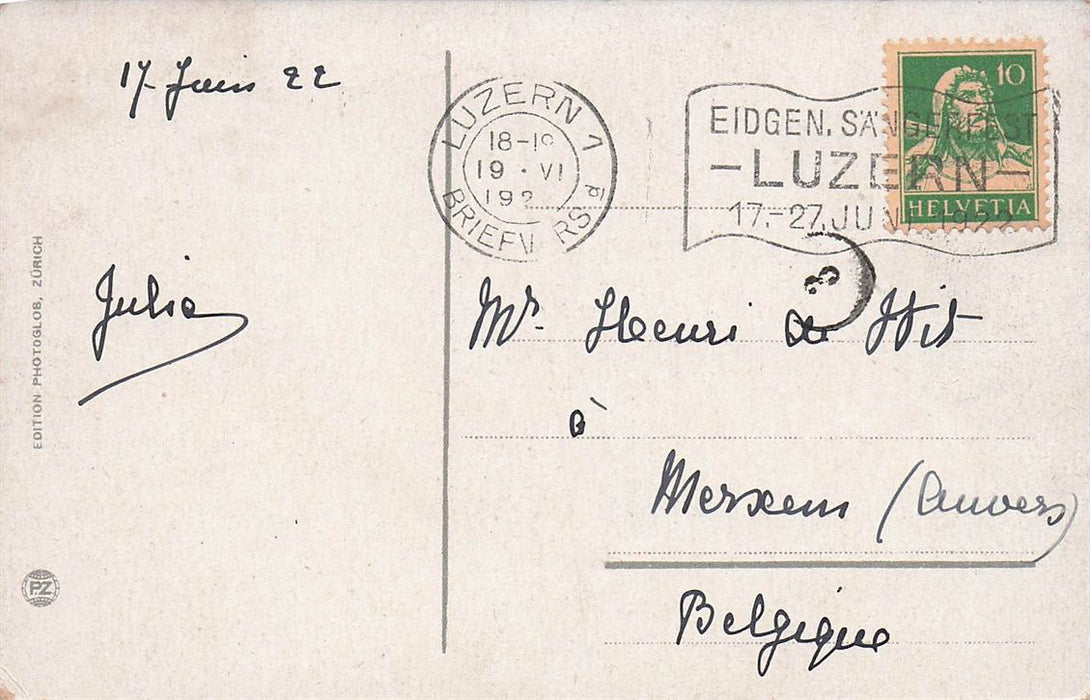 17 Juin 22
LUZERN 1
18-19
19 · VI
192
BRIEFV RSd
EIDGEN. SÄNGERFEST
-LUZERN-
17.-27. JUNI 1922
10
HELVETIA
3
EDITION PHOTOGLOB, ZÜRICH
Julia
Mr. Henri de Wit
à
Merxem (Anvers)
Belgique
PZ